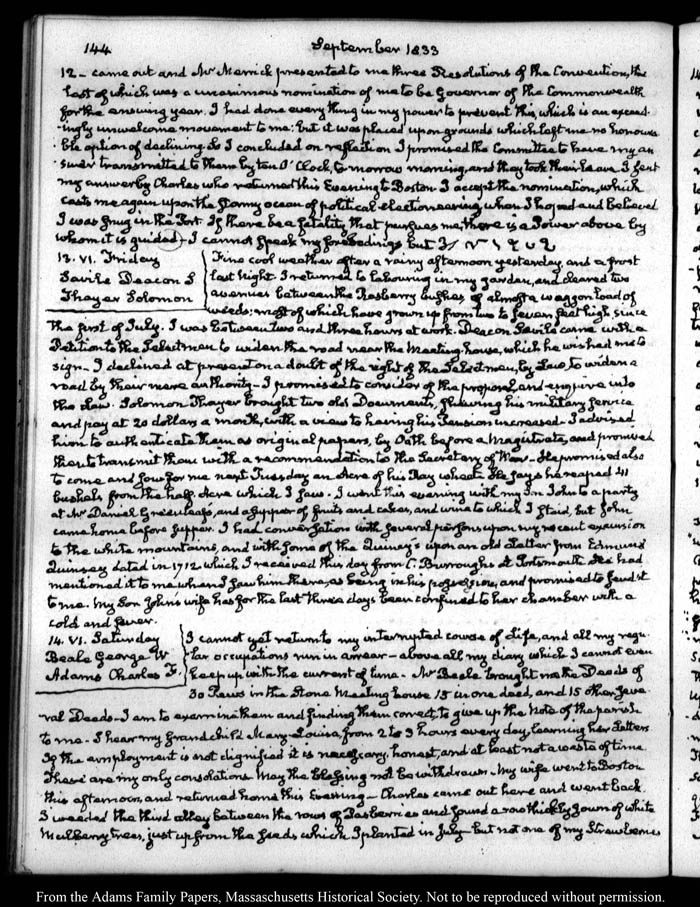 144
September 1833
12 - came out and Mr Merrick presented to me three Resolutions of the Convention, the
last of which was a unanimous nomination of me to be Governor of the Commonwealth
for the ensuing year. I had done every thing in my power to prevent this, which is an exceed-
ingly unwelcome movement to me: but it was placed upon grounds which left me no honoura-
ble option of declining. So I concluded on reflection I promised the Committee to have my an-
swer transmitted to them by ten O'Clock, to morrow morning, and they took their leave I sent
my answer by Charles who returned this Evening to Boston I accept the nomination, which
casts me again upon the stormy ocean of political electioneering when I hoped and believed
I was snug in the Port. If there be a fatality that pursues me, there is a Power above by
whom it is guided - I cannot speak my forebodings but
13. VI. Friday
Savile Deacon S
Thayer Solomon
Fine cool weather after a rainy afternoon yesterday, and a frost
last Night. I returned to labouring in my garden, and cleared two
avenues between the Rasberry bushes of almost a waggon load of
weeds; most of which have grown up from two to seven feet high, since
the first of July. I was between two and three hours at work. Deacon Savile came with a
Petition to the Selectmen to widen the road near the Meeting house, which he wished me to
sign. I declined at present on a doubt of the right of the Selectmen, by Law to widen a
road by their mere authority - I promised to consider of the proposal, and enquire into
the Law. Solomon Thayer brought two old Documents, shewing his military service
and pay at 20 dollars a month, with a view to having his Pension increased. I advised
him to authenticate them as original papers, by Oath before a Magistrate, and promised
then to transmit them with a recommendation to the Secretary of War. He promised also
to come and sow for me next Tuesday an Acre of his Ray wheat. He says he reaped 41
bushels from the half Acre which I saw. I went this evening with my Son John to a party
at Mr Daniel Greenleaf's, and a supper of fruits and cakes, and wine to which I staid, but John
came home before supper. I had conversation with several persons upon my recent excursion
to the white mountains, and with some of the Quincy's upon an old Letter from Edmund
Quinsey dated in 1712 which I received this day from C. Burroughs at Portsmouth. He had
mentioned it to me when I saw him there, as being in his possession, and promised to send it
to me. My Son John's wife has for the last three days been confined to her chamber with a
cold and fever.
14. VI. Saturday
Beale George W
Adams Charles F.
I cannot yet return to my interrupted course of Life, and all my regu-
lar occupations run in arrear - above all my diary which I cannot even
keep up with the current of time. Mr Beale brought me the Deeds of
30 Pews in the Stone Meeting house 15 in one deed, and 15 other seve-
ral Deeds - I am to examine them and finding them correct, to give up the Note of the parish
to me. I hear my Grand child Mary-Louisa, from 2 to 3 hours every day, learning her Letters
If the employment is not dignified it is necessary, honest, and at least not a waste of time
These are my only consolations. May the blessing not be withdrawn. My wife went to Boston
this afternoon, and returned home this Evening - Charles came out here and went back.
I weeded the third alley between the rows of Rasberries and found a row thickly sown of white
Mulberry trees, just up from the seeds which I planted in July but not one of my Strawberries
From the Adams Family Papers, Massachusetts Historical Society. Not to be reproduced without permission.